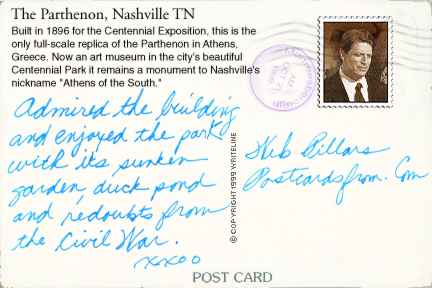 The Parthenon, Nashville TN
Built in 1896 for the Centennial Exposition, this is the
only full-scale replica of the Parthenon in Athens,
Greece. Now an art museum in the city's beautiful
Centennial Park it remains a monument to Nashville's
nickname "Athens of the South."
Admired the building
and enjoyed the park
with its sunken
garden, duck pond
and redoubts from
the Civil War.
xxoo
© COPYRIGHT 1999 WRITELINE
Hib Pillars
Postcardsfrom.Com
POST CARD